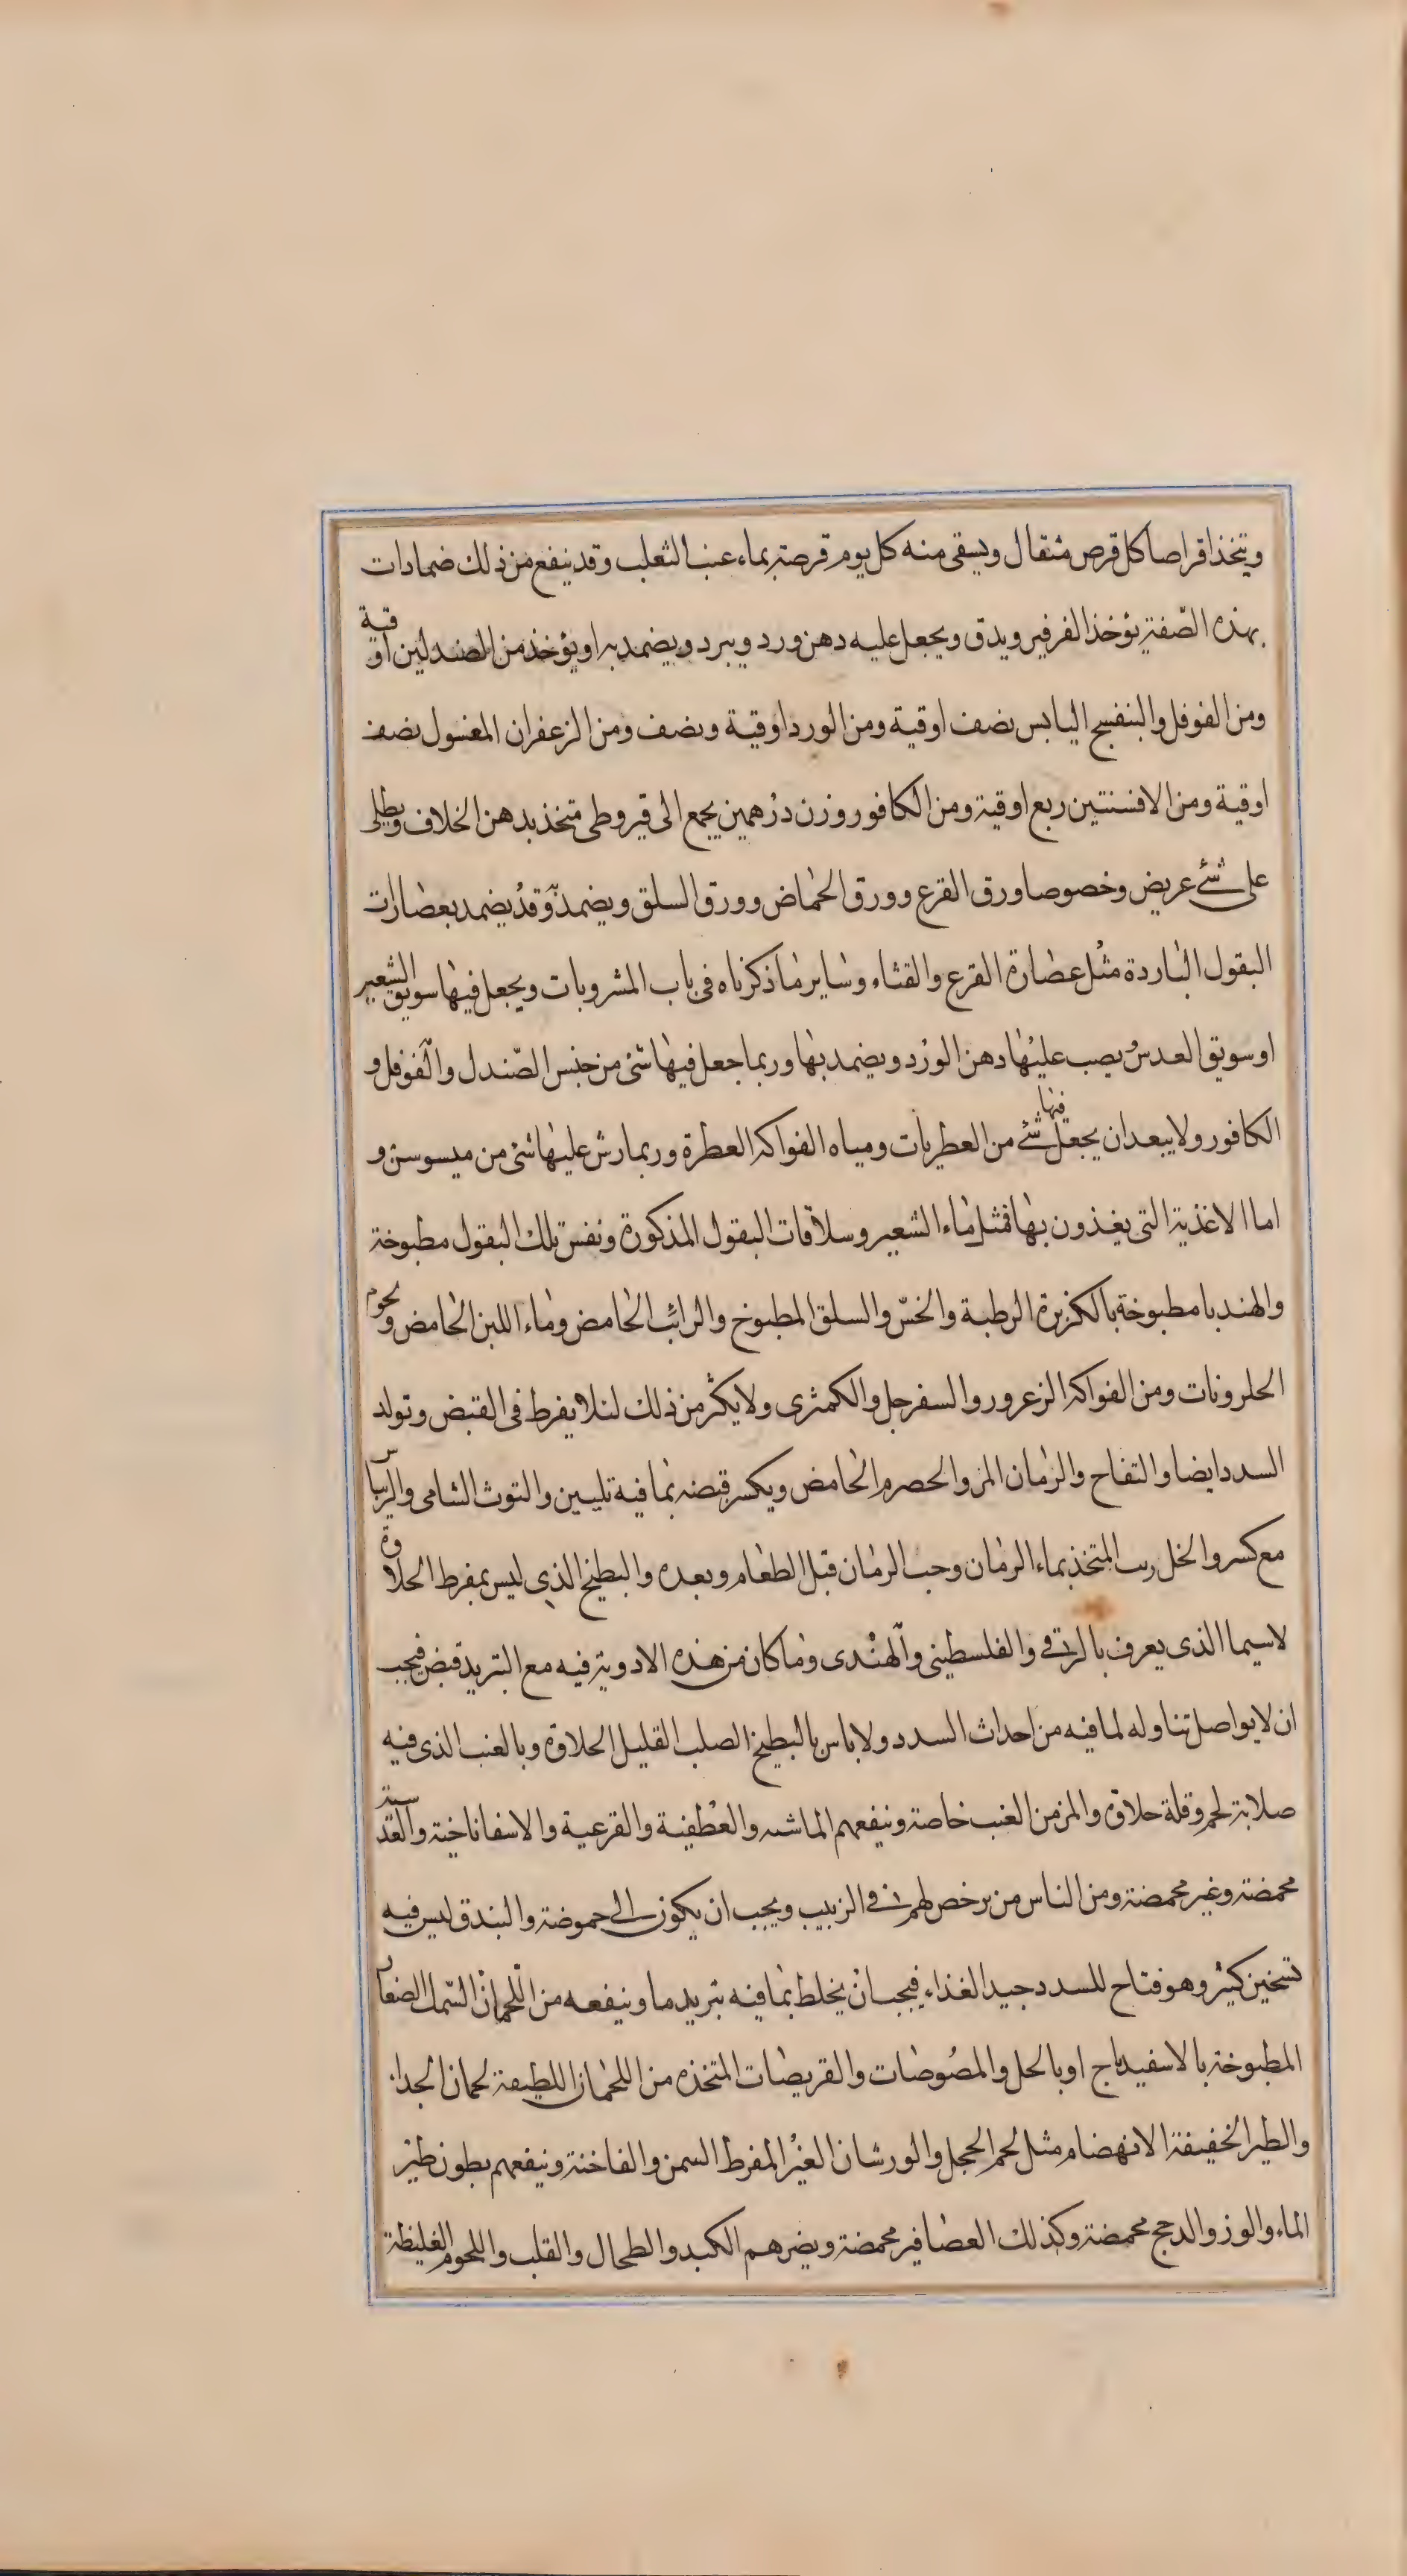 ويتخذ اقراصا كل قرص مثقال ويسقى منه كل يوم قرصة بماء عنب الثعلب وقد ينفع من ذلك ضمادات
بهذه الصّفة يؤخذ الفرفير ويدق ويجعل عليه دهن ورد ويبرد ويضمد به او يؤخذ من الصندلين اوقية
ومن الفوفل والبنفسج اليابس نصف اوقية ومن الورد اوقية ونصف ومن الزعفران المغسول نصف
اوقية ومن الافسنتين ربع اوقية ومن الكافور وزن درهمين يجمع الى قيروطى متخذ بدهن الخلاف ويطلى
على شئ عريض وخصوصا ورق القرع وورق الحماض وورق السلق ويضمد به وقد يضمد بعصارات
البقول الباردة مثل عصارة القرع والقثاء وساير ما ذكرناه فى باب المشروبات ويجعل فيها سويق الشعير
او سويق العدس ويصب عليها دهن الورد ويضمد بها وربما جعل فيها شئ من جنس الصّندل والفوفل و
الكافور ولا يبعد ان يجعل فيها شئ من العطريات ومياه الفواكه العطرة وربما رش عليها شئ من ميسوسن و
اما الاغذية التى يغذون بها فمثل ماء الشعير وسلاقات البقول المذكورة ونفس تلك البقول مطبوخة
والهندبا مطبوخة بالكزبرة الرطبة والخسّ والسلق المطبوخ والرائب الحامض وماء اللبن الحامض ولحوم
الحلزونات ومن الفواكه الزعرور والسفرجل والكمثرى ولا يكثر من ذلك لئلا يفرط فى القبض وتولد
السدد ايضا والتفاح والرمان المز والحصرم الحامض ويكسر قبضه بما فيه تليين والتوث الشامى والريباس
مع كسر والخل رب المتخذ بماء الرمان وحب الرمان قبل الطعام وبعده والبطيخ الذى ليس بمفرط الحلاوة
لاسيما الذى يعرف بالرقى والفلسطينى والهندى وما كان من هذه الادوية فيه مع التبريد قبض فيجب
ان لا يواصل تناوله لما فيه من احداث السدد ولا باس بالبطيخ الصلب القليل الحلاوة وبالعنب الذى فيه
صلابة لحم وقلة حلاوة والمز من العنب خاصة وينفعهم الماشية والقطفية والقرعية والاسفاناخية والعدسية
محمضة وغير محمضة ومن الناس من يرخص لهم فى الزبيب ويجب ان يكون الى حموضة والبندق ليس فيه
تسخين كثير وهو فتاح للسدد جيد الغذاء فيجب ان يخلط بما فيه تبريد ما وينفعه من اللحمان السّمك الصغار
المطبوخة بالاسفيدباج او بالخل والمصوصات والقريصات المتخذه من اللحمان اللطيفة لحمان الجدا
والطير الخفيفة الانهضام مثل لحم الحجل والورشان الغير المفرط السمن والفاختة وينفعهم بطون طير
الماء والوز والدجج محمضة وكذلك العصافير محمضة ويضرهم الكبد والطحال والقلب واللحوم الغليظة